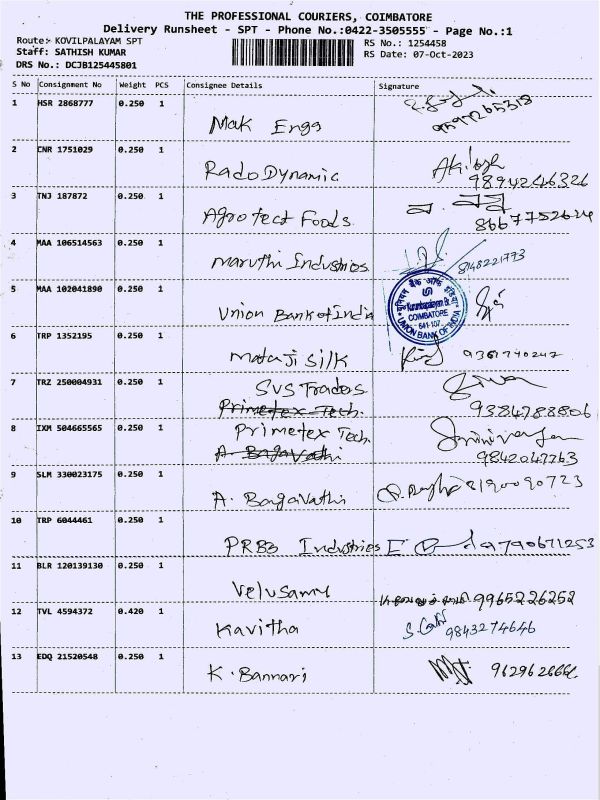 THE PROFESSIONAL COURIERS, COIMBATORE
Delivery Runsheet - SPT - Phone No.:0422-3505555 - Page No.:1
Route:- KOVILPALAYAM SPT
RS No.: 1254458
Staff: SATHISH KUMAR
RS Date: 07-Oct-2023
DRS No.: DCJB125445801
S No Consignment No Weight PCS Consignee Details Signature
1 HSR 2868777 0.250 1
Mak Engg
2 CNR 1751029 0.250 1
Rado Dynamic
9894246326
3 TNJ 187872 0.250 1
Agrotect Foods
8667752624
4 MAA 106514563 0.250 1
Maruthi Industries 8148221773
5 MAA 102041890 0.250 1
Union Bank of India
Kurumbapalayam Br.
COIMBATORE
641-107
UNION BANK OF INDIA
6 TRP 1352195 0.250 1
Mataji Silk 9361740247
7 TRZ 250004931 0.250 1
SVS Traders
Primetex Tech. 9384788806
8 IXM 504665565 0.250 1
Primetex Tech.
A. Bagavathi 9842047763
9 SLM 330023175 0.250 1
A. Bagavathi 8190090723
10 TRP 6044461 0.250 1
PRBB Industries 9790671253
11 BLR 120139130 0.250 1
Velusamy 9965226252
12 TVL 4594372 0.420 1
Kavitha 9843274646
13 EDQ 21520548 0.250 1
K. Bannari